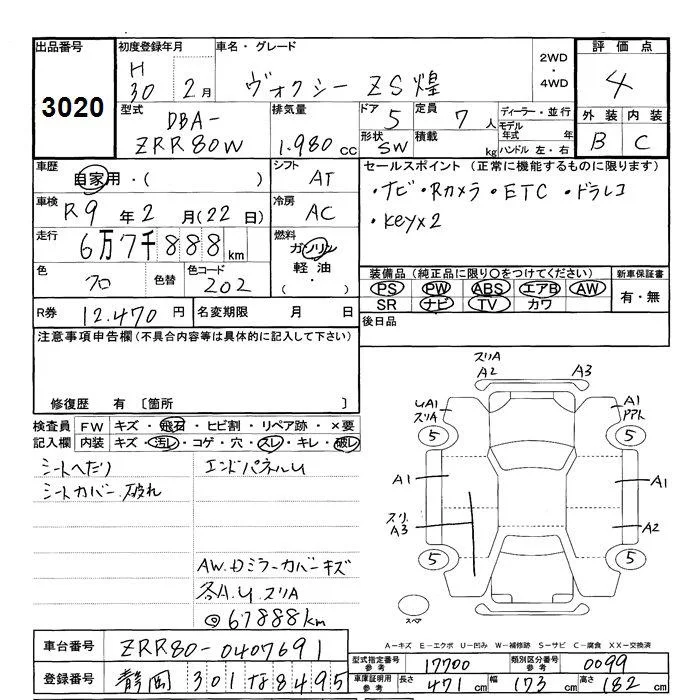 出品番号 初度登録年月 車名・グレード 評価点
3020 H30 2月 ヴォクシー ZS煌 2WD・4WD 4
型式 排気量 ドア 5 定員 7人 ディーラー・並行 外装 内装
DBA-ZRR80W 1.980cc 形状 SW 積載 kg モデル年式 年 B C
ハンドル 左・右
車歴 自家用・( ) シフト AT セールスポイント (正常に機能するものに限ります)
車検 R9年2月(22日) 冷房 AC ・ナビ・Rカメラ・ETC・ドラレコ
・keyx2
走行 6万7千888km 燃料 ガソリン 軽油 ( ・ )
色 クロ 色替 色コード 202 装備品 (純正品に限り〇をつけてください) 新車保証書
PS PW ABS エアB AW 有・無
SR ナビ TV カワ
R券 12.470円 名変期限 月 日 後日品
注意事項申告欄(不具合内容等は具体的に記入して下さい)
修復歴 有 〔箇所 〕
検査員 FW キズ・飛石・ヒビ割・リペア跡・×要
記入欄 内装 キズ・汚レ・コゲ・穴・スレ・キレ・破レ
シートへたり エンドパネルU
シートカバー破れ
AW.Dミラーカバーキズ
各A.U.スリA
◎67888km
スリA
A2 A3
UA1 A1
スリA
5 5
A1 A1
スリ A2
A3
5 5
スペア
A－キズ E－エクボ U－凹み W－補修跡 S－サビ C－腐食 XX－交換済
車台番号 ZRR80-0407691 型式指定番号 参考 17700 類別区分番号 参考 0099
登録番号 静岡 301 な 8495 車庫証明用 参考 長さ 471cm 幅 173cm 高さ 182cm